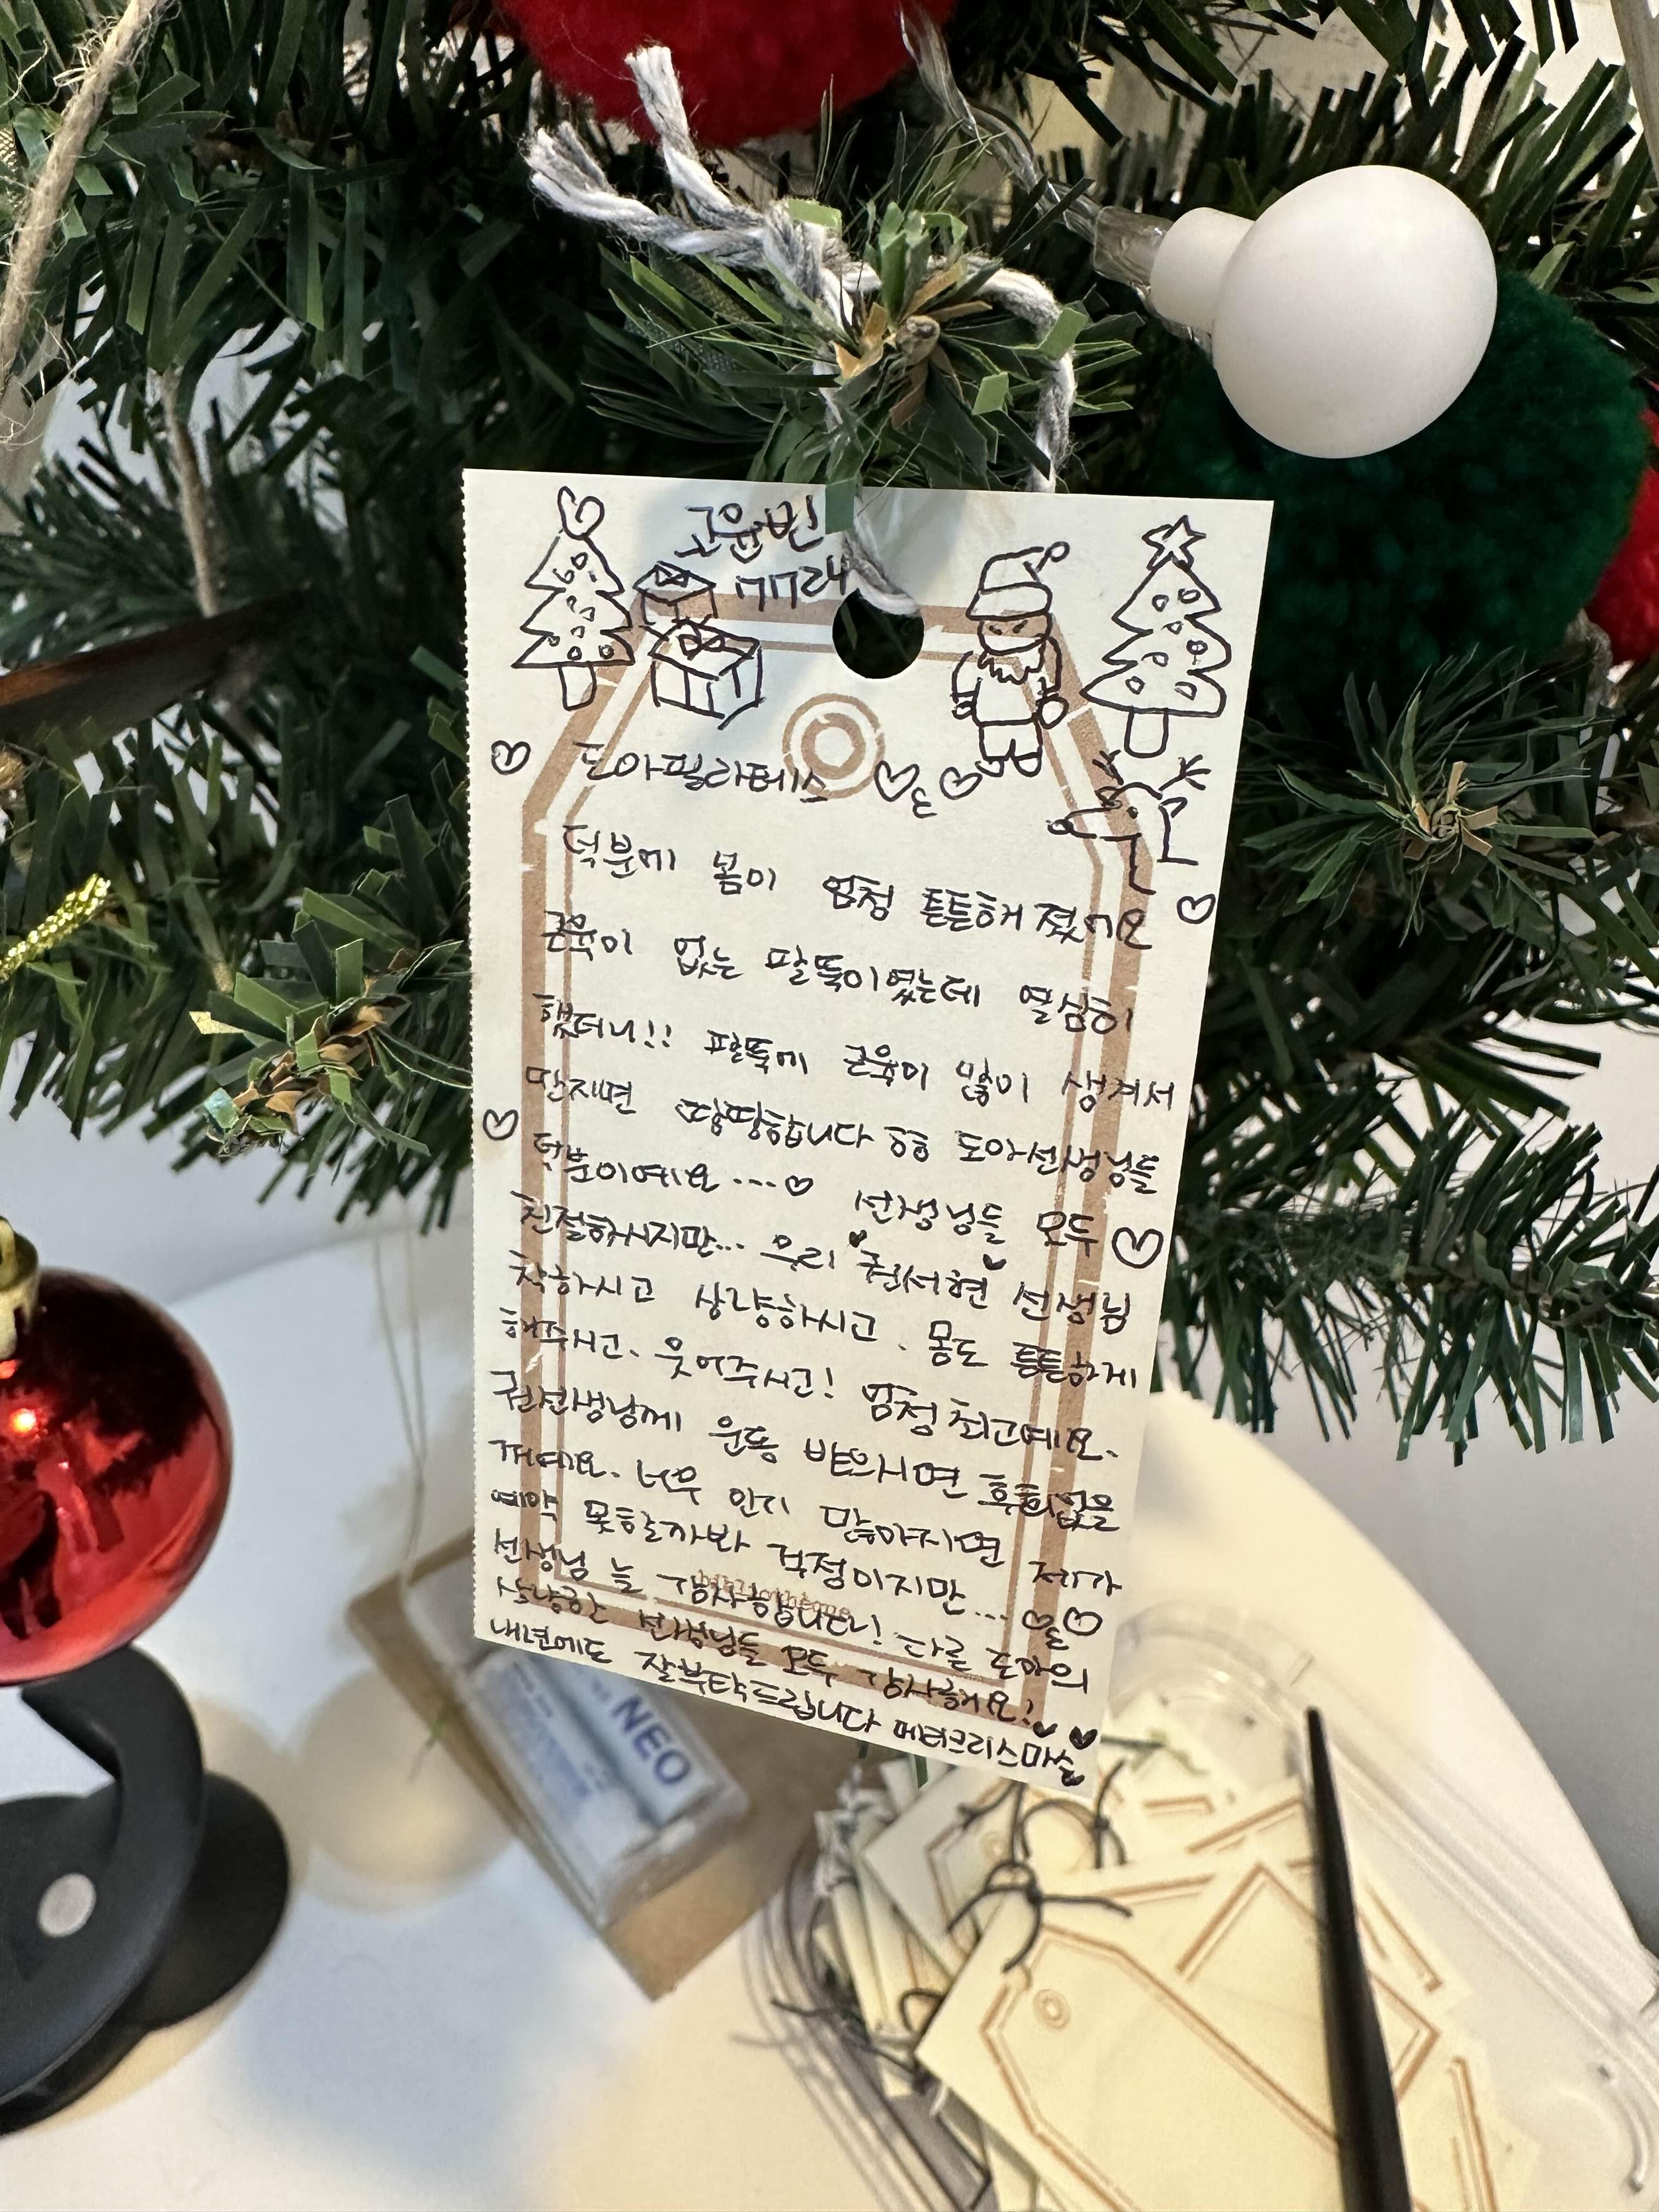 고윤빈
7724
도아필라테스
덕분에 몸이 엄청 튼튼해졌어요
근육이 없는 팔뚝이였는데 열심히
했더니!! 팔뚝에 근육이 많이 생겨서
만지면 땅땅합니다 히히 도아선생님들
덕분이예요...♡ 선생님들 모두
친절하시지만... 우리 권서현 선생님
착하시고 상냥하시고. 몸도 튼튼하게
해주시고. 웃어주시고! 엄청 최고예요.
권선생님께 운동 받으시면 후회없을
꺼예요. 너무 인기 많아지면 제가
예약 못할까봐 걱정이지만...
선생님 늘 감사합니다! 다른 도아의
상냥한 선생님들 모두 감사해요!
내년에도 잘부탁드립니다 메리크리스마스
NEO